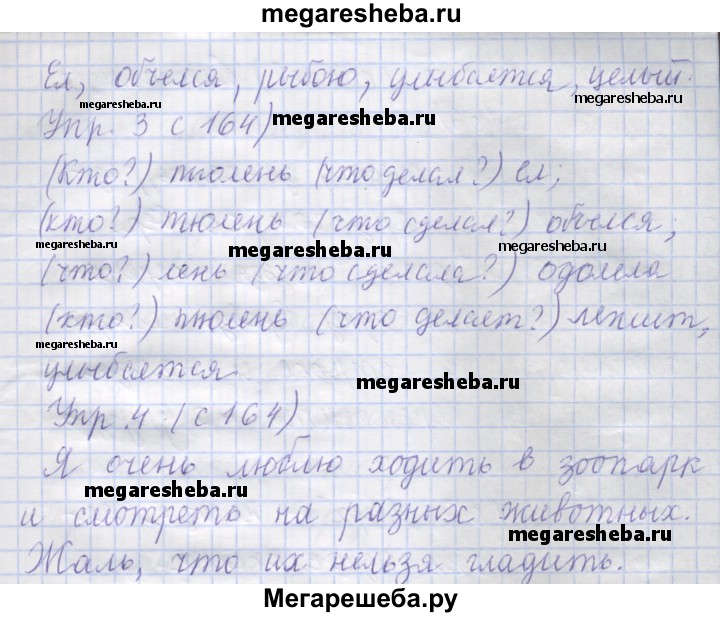 megaresheba.ru
Ел, объелся, рыбою, улыбается, целый.
megaresheba.ru
megaresheba.ru
Упр. 3 с 164)
megaresheba.ru
(Кто?) тюлень (что делал?) ел;
(кто?) тюлень (что сделал?) объелся;
megaresheba.ru
megaresheba.ru
megaresheba.ru
(что?) лень (что сделала?) одолела
(кто?) тюлень (что делает?) лежит,
megaresheba.ru
улыбается.
megaresheba.ru
Упр. 4 (с 164)
Я очень люблю ходить в зоопарк
megaresheba.ru
и смотреть на разных животных.
megaresheba.ru
Жаль, что их нельзя гладить.
Мегарешеба.ру